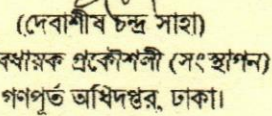 (দেবাশীষ চন্দ্র সাহা)
প্রকৌশলী (সংস্থাপন)
গণপূর্ত অধিদপ্তর, ঢাকা।